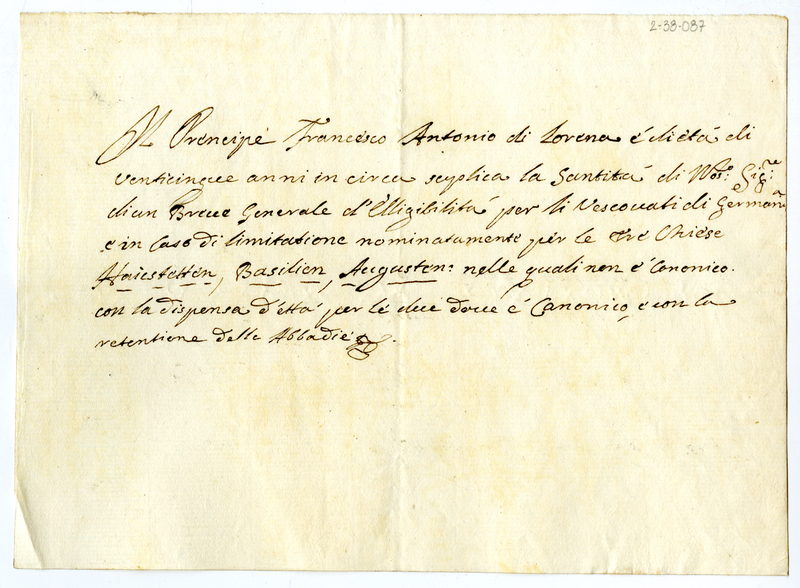 2-38-087
Il Prencipe Francesco Antonio di Lorena é di étá di
venticinque anni in circa suplica la Santitá di Nos: Sig:re
di un Breve Generale d'Elligibilitá per li Vescovati di German:a
e in Caso di limitatione nominatamente per le tré Chiese
Aaiestetten, Basilien, Augusten: nelle quali non é Canonico.
con la dispensa d'ettá per le due dove é Canonico, e con la
retentione delle Abbadie.